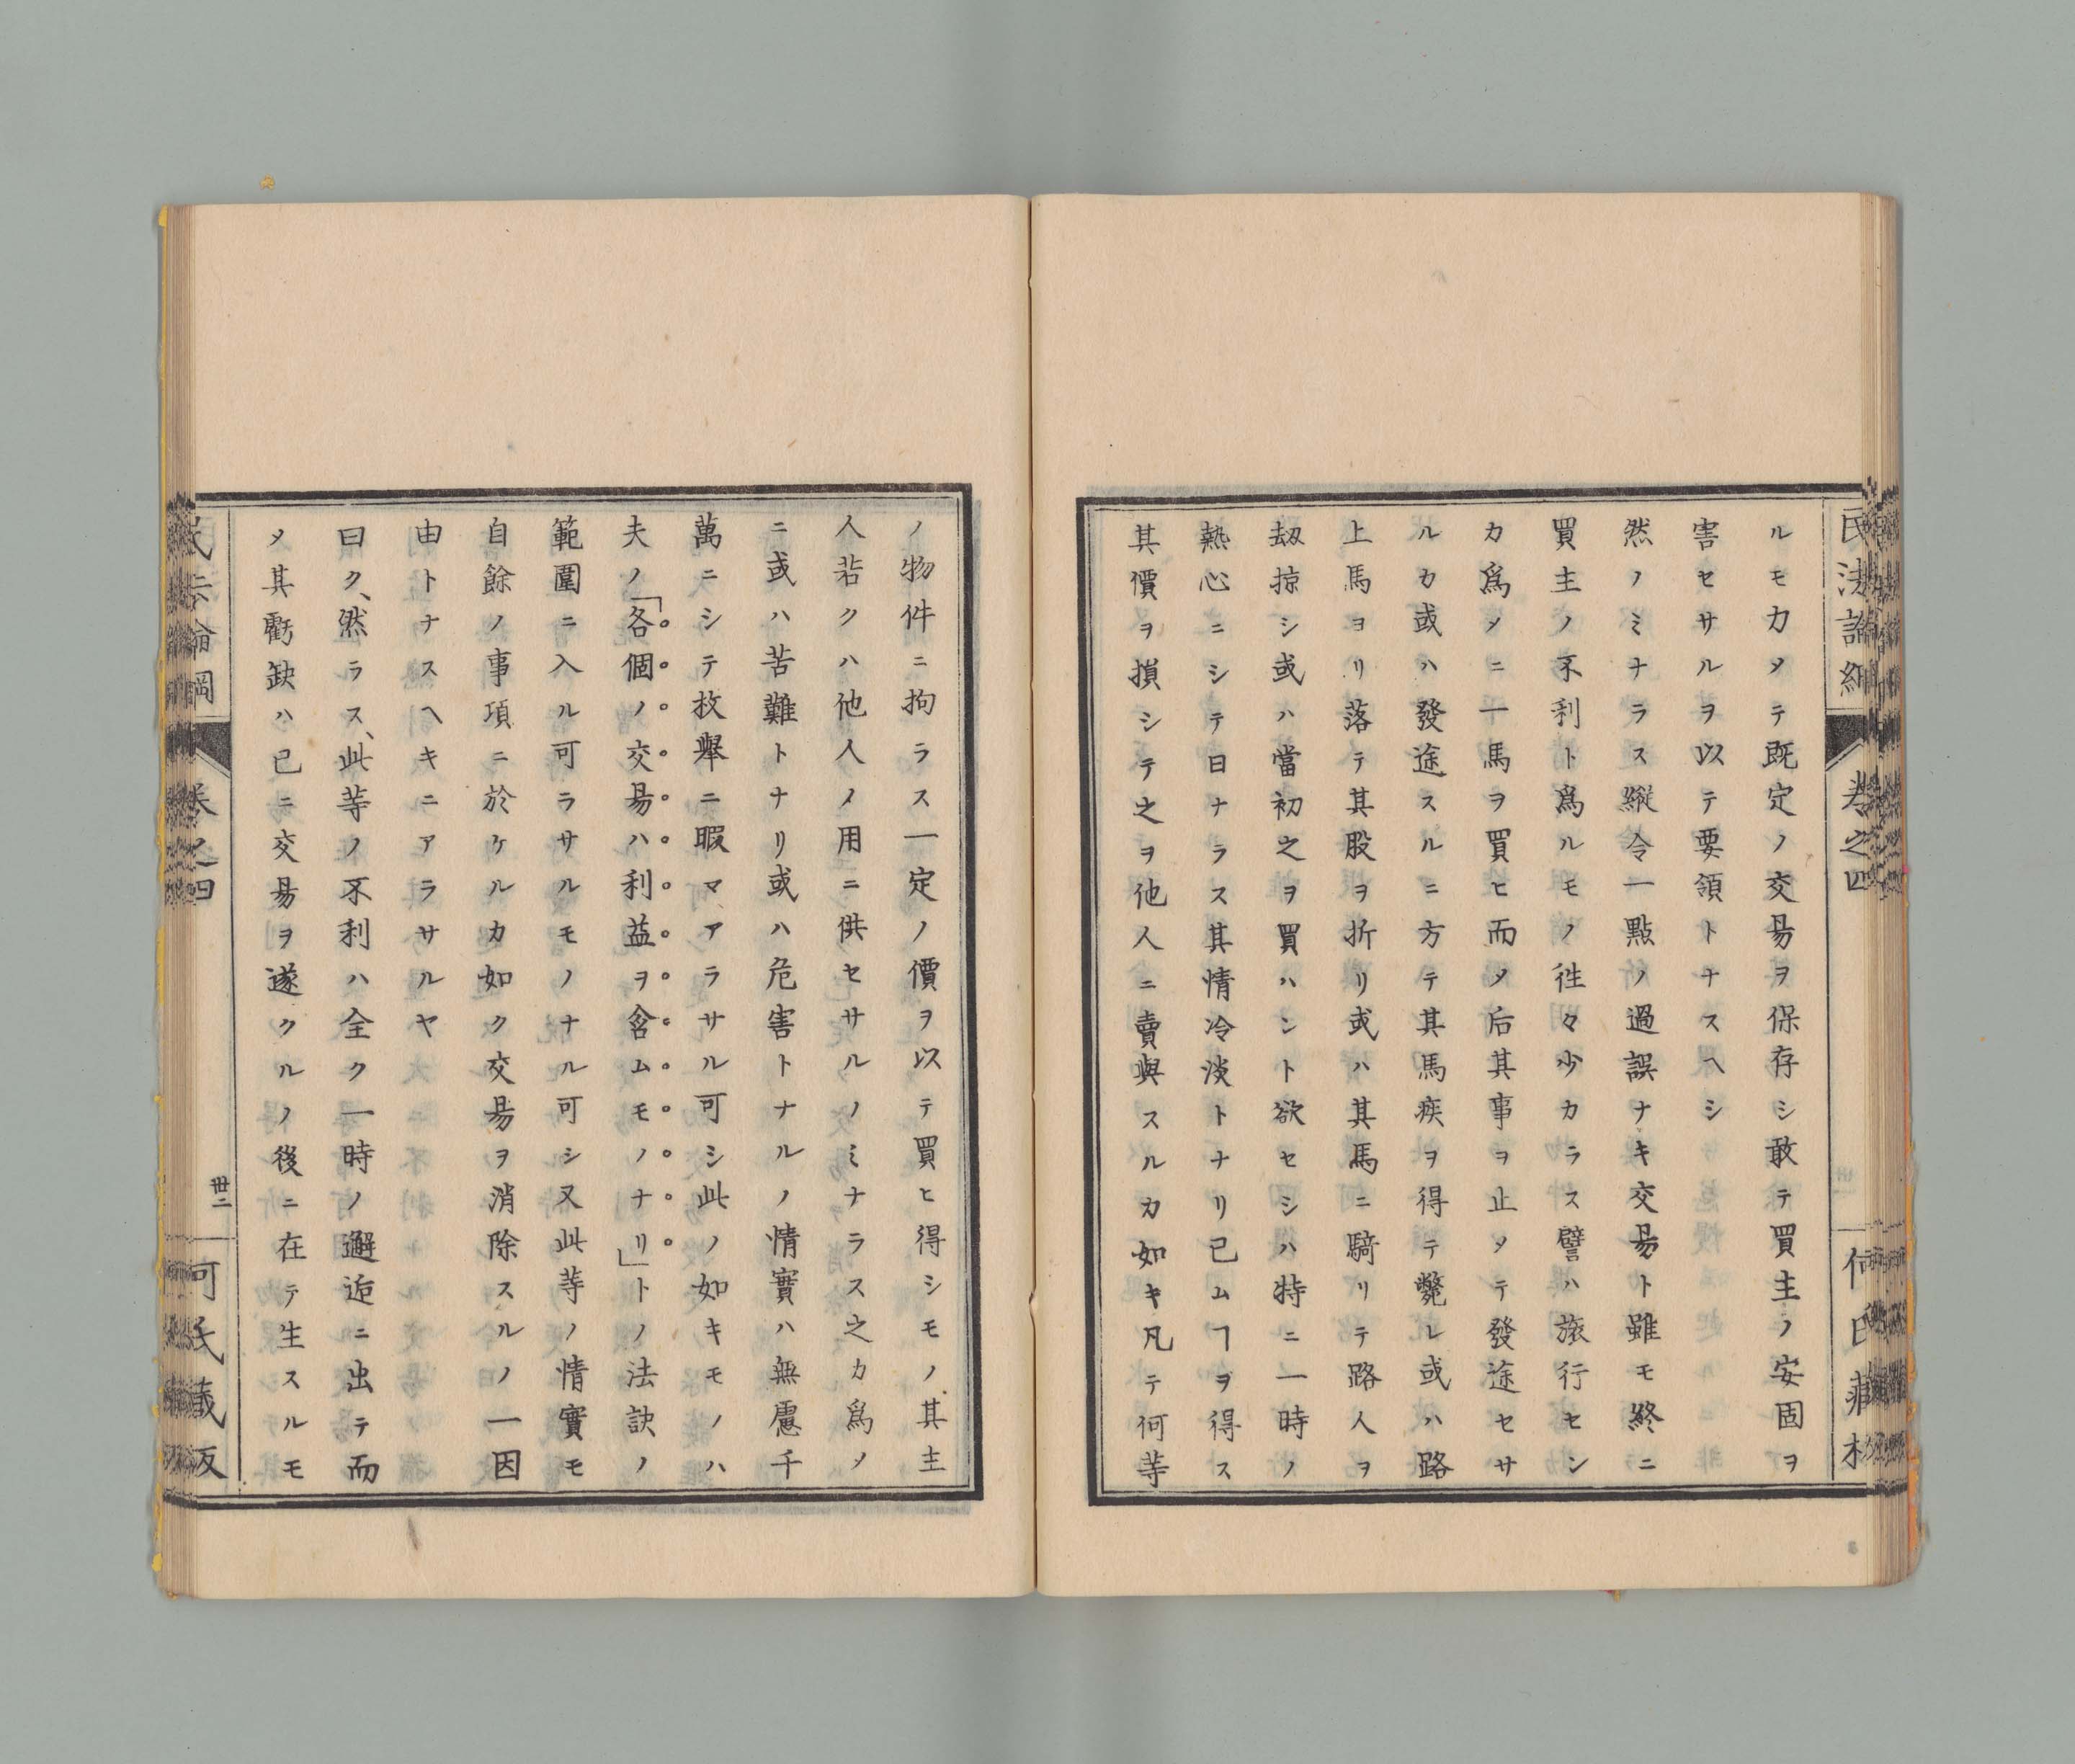 民法論綱 卷之四 何氏藏板
ルモカタテ既定ノ交易ヲ保存シ敢テ買主ノ安固ヲ
害セサルヲ以テ要領トナスヘシ
然ノミナラス縱令一點ノ過誤ナキ交易ト雖モ終ニ
買主ノ不利ト爲ルモノ徃々少カラス譬ハ旅行セン
カ爲メニ一馬ヲ買ヒ而メ后其事ヲ止メテ發途セサ
ルカ或ハ發途スルニ方テ其馬疾ヲ得テ斃レ或ハ路
上馬ヨリ落テ其股ヲ折リ或ハ其馬ニ騎リテ路人ヲ
刼掠シ或ハ當初之ヲ買ハント欲セシハ特ニ一時ノ
熱心ニシテ日ナラス其情冷淡トナリ已ムヿヲ得ス
其價ヲ損シテ之ヲ他人ニ賣與スルカ如キ凡テ何等
ノ物件ニ拘ラス一定ノ價ヲ以テ買ヒ得シモノ、其主
人若クハ他人ノ用ニ供セサルノミナラス之カ爲ノ
ニ或ハ苦難トナリ或ハ危害トナルノ情實ハ無慮千
萬ニシテ枚擧ニ暇マアラサル可シ此ノ如キモノハ
夫ノ「各個ノ交易ハ利益ヲ含ムモノナリ」トノ法訣ノ
範圍ニ入ル可ラサルモノナル可シ又此等ノ情實モ
自餘ノ事項ニ於ケルカ如ク交昜ヲ消除スルノ一因
由トナスヘキニアラサルヤ
曰ク、然ラス、此等ノ不利ハ全ク一時ノ邂逅ニ出テ而
メ其虧缺ハ已ニ交易ヲ遂クルノ後ニ在テ生スルモ
民法論綱 卷之四 卅二 何氏藏板